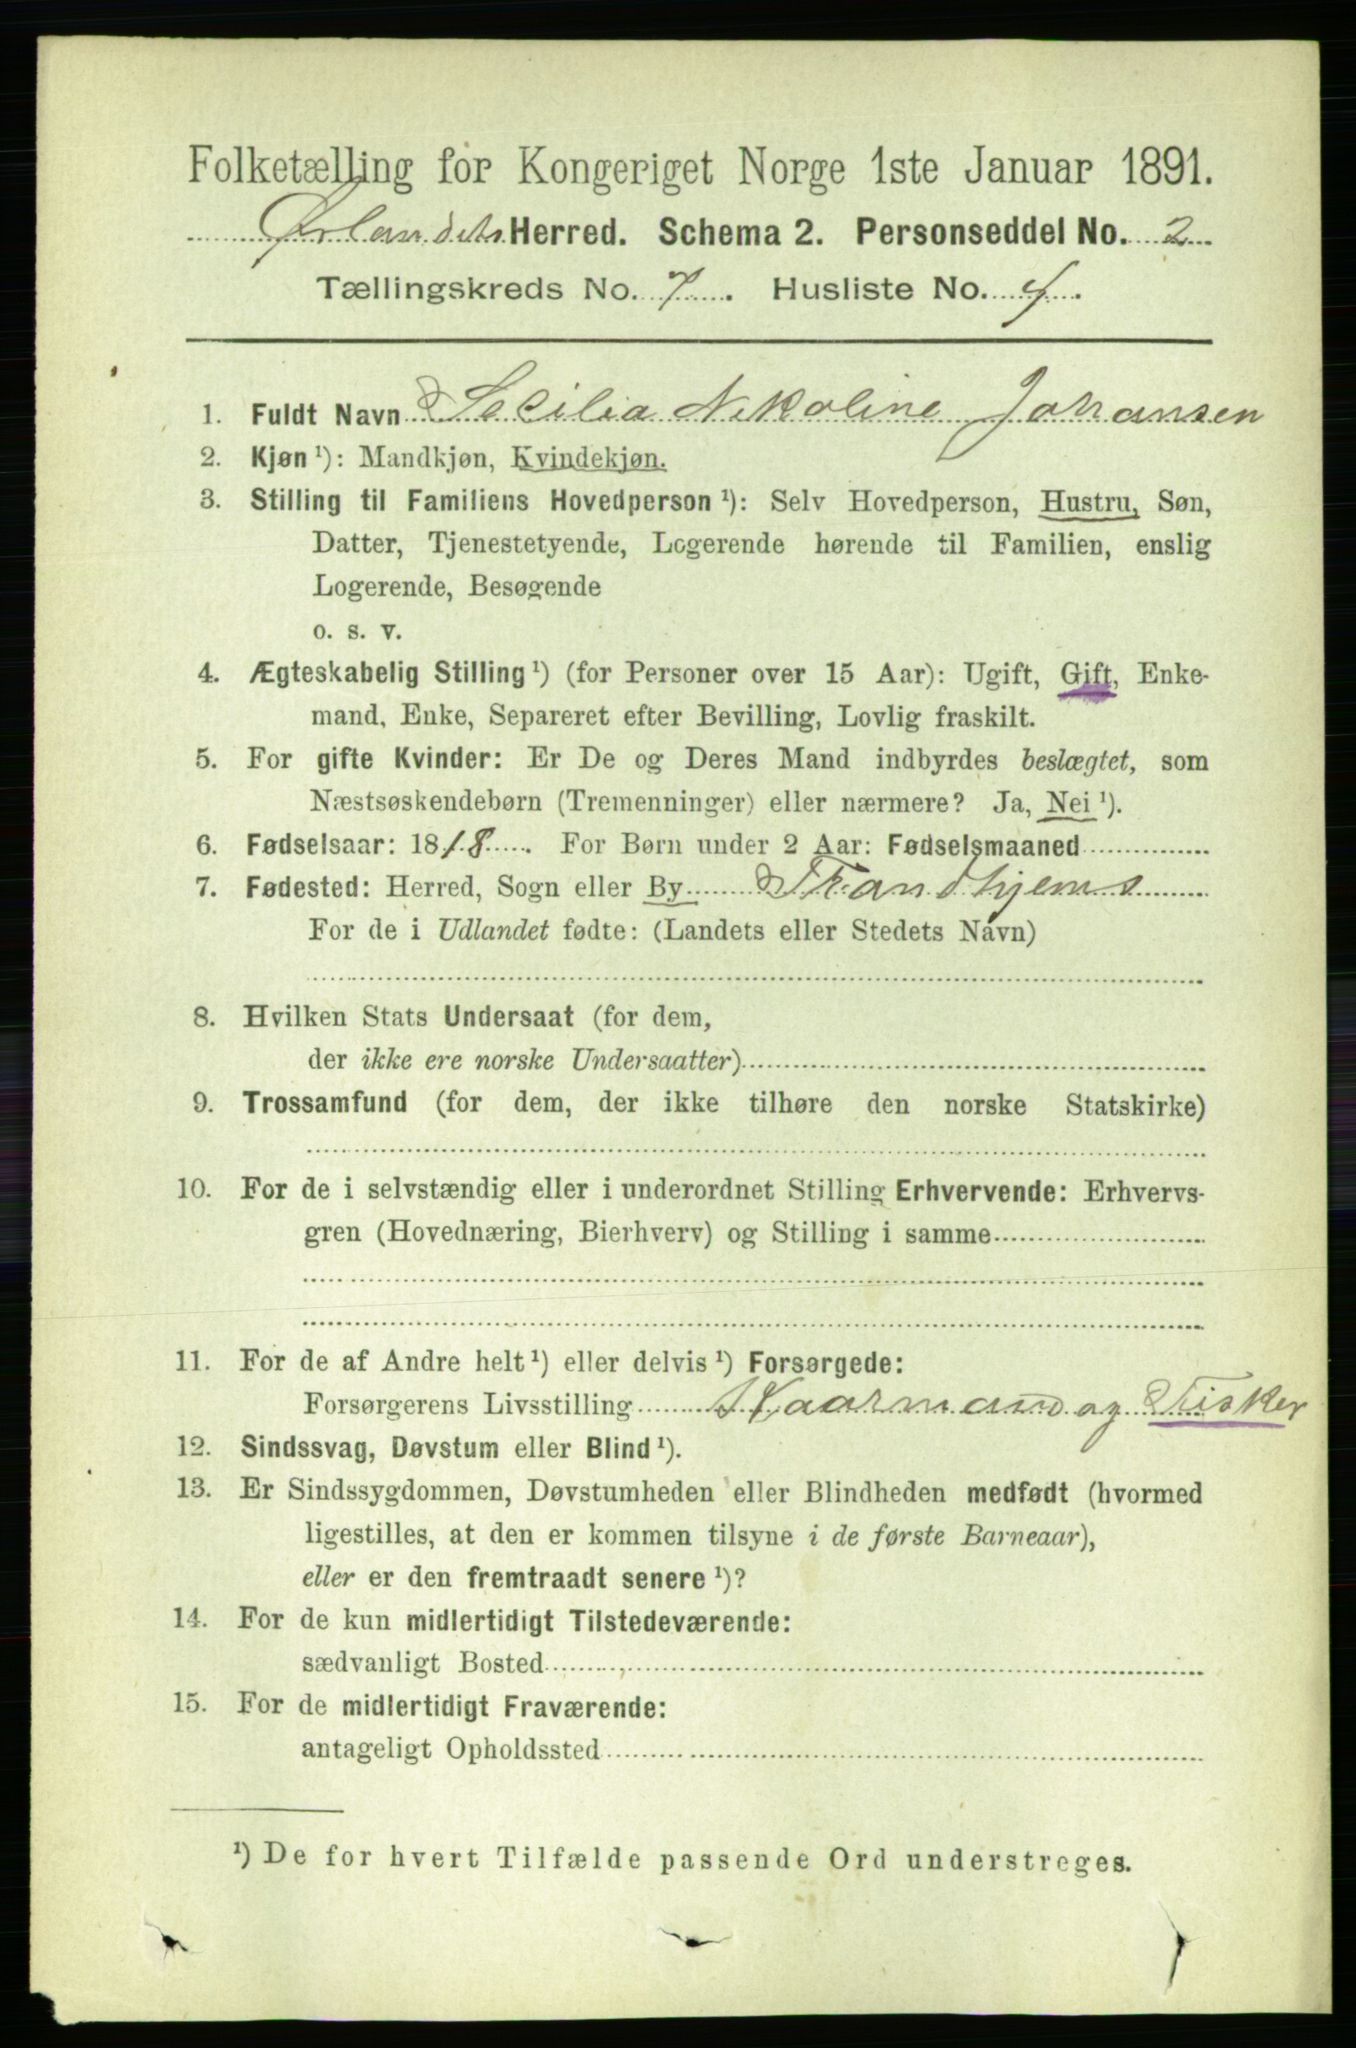 Folketælling for Kongeriget Norge 1ste Januar 1891.
Ørlandets Herred. Schema 2. Personseddel No. 2
Tællingskreds No. 7. Husliste No. 4.
1. Fuldt Navn Secilia Nekoline Johansen
2. Kjøn ¹): Mandkjøn, Kvindekjøn.
3. Stilling til Familiens Hovedperson ¹): Selv Hovedperson, Hustru, Søn,
Datter, Tjenestetyende, Logerende hørende til Familien, enslig
Logerende, Besøgende
o. s. v.
4. Ægteskabelig Stilling ¹) (for Personer over 15 Aar): Ugift, Gift, Enke-
mand, Enke, Separeret efter Bevilling, Lovlig fraskilt.
5. For gifte Kvinder: Er De og Deres Mand indbyrdes beslægtet, som
Næstsøskendebørn (Tremenninger) eller nærmere? Ja, Nei ¹).
6. Fødselsaar: 1818. For Børn under 2 Aar: Fødselsmaaned
7. Fødested: Herred, Sogn eller By Trandhjems
For de i Udlandet fødte: (Landets eller Stedets Navn)
8. Hvilken Stats Undersaat (for dem,
der ikke ere norske Undersaatter)
9. Trossamfund (for dem, der ikke tilhøre den norske Statskirke)
10. For de i selvstændig eller i underordnet Stilling Erhvervende: Erhvervs-
gren (Hovednæring, Bierhverv) og Stilling i samme
11. For de af Andre helt ¹) eller delvis ¹) Forsørgede:
Forsørgerens Livsstilling Kaarmand og Fisker
12. Sindssvag, Døvstum eller Blind ¹).
13. Er Sindssygdommen, Døvstumheden eller Blindheden medfødt (hvormed
ligestilles, at den er kommen tilsyne i de første Barneaar),
eller er den fremtraadt senere ¹)?
14. For de kun midlertidigt Tilstedeværende:
sædvanligt Bosted
15. For de midlertidigt Fraværende:
antageligt Opholdssted
¹) De for hvert Tilfælde passende Ord understreges.